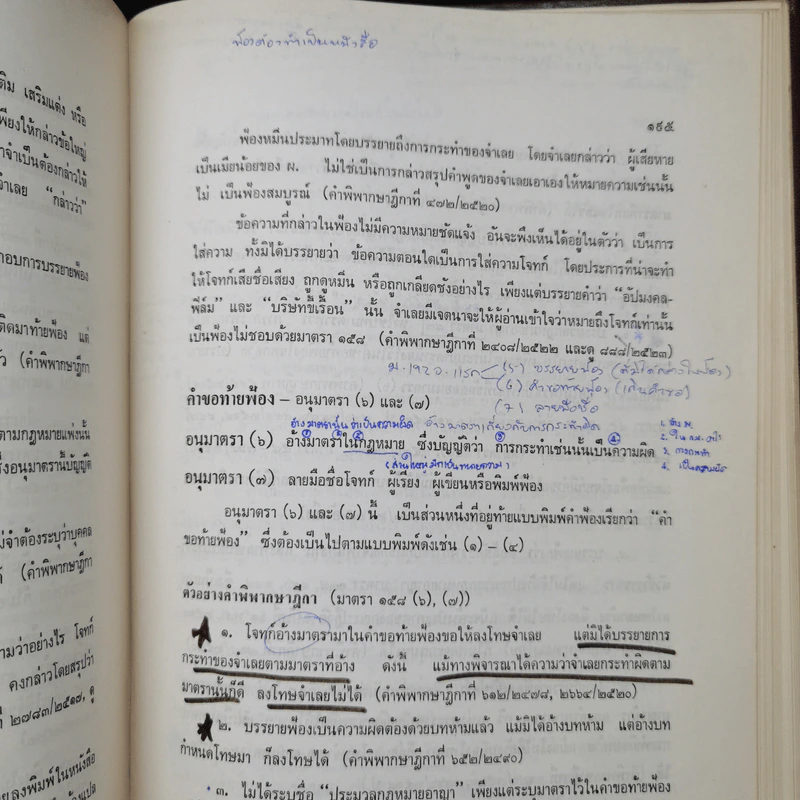 ฟ้องต้องทำเป็นหนังสือ
๑๙๕
ติม เสริมแต่ง หรือ
เพียงให้กล่าวข้อใหญ่
าจำเป็นต้องกล่าวให้
จำเลย “กล่าวว่า”
กอบการบรรยายฟ้อง
ติดมาท้ายฟ้อง แต่
ว (คำพิพากษาฎีกา
ตามกฎหมายแพ่งนั้น
ซึ่งอนุมาตรานี้บัญญัติ
ม่จำต้องระบุว่าบุคคล
(คำพิพากษาฎีกา
ามว่าอย่างไร โจทก์
คงกล่าวโดยสรุปว่า
๒๗๘๓/๒๕๑๗, ดู
ยลงพิมพ์ในหนังสือ
ฟ้องหมิ่นประมาทโดยบรรยายถึงการกระทำของจำเลย โดยจำเลยกล่าวว่า ผู้เสียหาย
เป็นเมียน้อยของ ผ. ไม่ใช่เป็นการกล่าวสรุปคำพูดของจำเลยเอาเองให้หมายความเช่นนั้น
ไม่ เป็นฟ้องสมบูรณ์ (คำพิพากษาฎีกาที่ ๔๗๒/๒๕๒๐)
ข้อความที่กล่าวในฟ้องไม่มีความหมายชัดแจ้ง อันจะพึงเห็นได้อยู่ในตัวว่า เป็นการ
ใส่ความ ทั้งมิได้บรรยายว่า ข้อความตอนใดเป็นการใส่ความโจทก์ โดยประการที่น่าจะทำ
ให้โจทก์เสียชื่อเสียง ถูกดูหมิ่น หรือถูกเกลียดชังอย่างไร เพียงแต่บรรยายคำว่า “อัปมงคล-
ฟิล์ม” และ “บริษัทขี้เรื้อน” นั้น จำเลยมีเจตนาจะให้ผู้อ่านเข้าใจว่าหมายถึงโจทก์เท่านั้น
เป็นฟ้องไม่ชอบด้วยมาตรา ๑๕๘ (คำพิพากษาฎีกาที่ ๒๔๐๘/๒๕๒๒ และดู ๘๘๘/๒๕๒๓)
(๕) บรรยายฟ้อง
(๖) คำขอท้ายฟ้อง
(๗) ลายมือชื่อ
คำขอท้ายฟ้อง – อนุมาตรา (๖) และ (๗)
อนุมาตรา (๖) อ้างมาตราในกฎหมาย ซึ่งบัญญัติว่า การกระทำเช่นนั้นเป็นความผิด
อนุมาตรา (๗) ลายมือชื่อโจทก์ ผู้เรียง ผู้เขียนหรือพิมพ์ฟ้อง
อนุมาตรา (๖) และ (๗) นี้ เป็นส่วนหนึ่งที่อยู่ท้ายแบบพิมพ์คำฟ้องเรียกว่า “คำ
ขอท้ายฟ้อง” ซึ่งต้องเป็นไปตามแบบพิมพ์ดังเช่น (๑) – (๔)
ตัวอย่างคำพิพากษาฎีกา (มาตรา ๑๕๘ (๖), (๗))
๑. โจทก์อ้างมาตรามาในคำขอท้ายฟ้องขอให้ลงโทษจำเลย แต่มิได้บรรยายการ
กระทำของจำเลยตามมาตราที่อ้าง ดังนี้ แม้ทางพิจารณาได้ความว่าจำเลยกระทำผิดตาม
มาตรานั้นก็ดี ลงโทษจำเลยไม่ได้ (คำพิพากษาฎีกาที่ ๖๑๒/๒๔๗๘, ๒๖๖๔/๒๕๒๐)
๒. บรรยายฟ้องเป็นความผิดต้องด้วยบทห้ามแล้ว แม้มิได้อ้างบทห้าม แต่อ้างบท
กำหนดโทษมา ก็ลงโทษได้ (คำพิพากษาฎีกาที่ ๖๕๒/๒๔๙๐)
๓. ไม่ได้ระบุชื่อ “ประมวลกฎหมายอาญา” เพียงแต่ระบุมาตราไว้ในคำขอท้ายฟ้อง